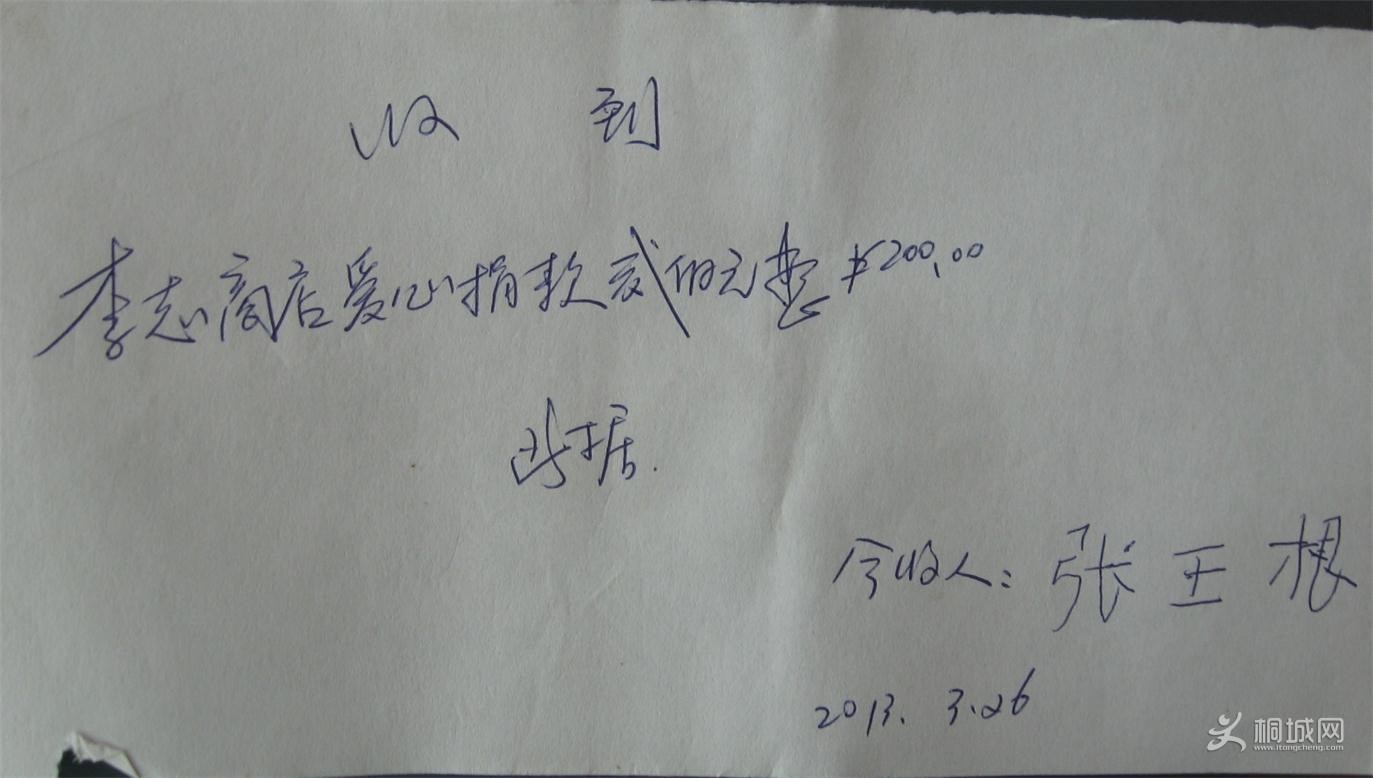 收到
李志商店爱心捐款贰佰元整¥200.00
此据.
今收人：张王根
2013.3.26
桐城网
www.itongcheng.com